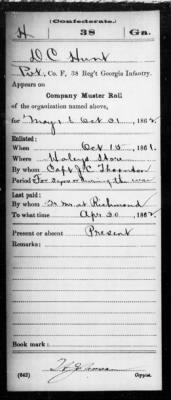 (Confederate.)
H 38 Ga.
D C Hunt
Pvt., Co. F, 38 Reg't Georgia Infantry.
Appears on
Company Muster Roll
of the organization named above,
for May 1 to Oct 31, 1862.
Enlisted:
When Oct 15, 1861.
Where Store
By whom Capt J.C.
Period For 3 years or during the war
Last paid:
By whom at Richmond
To what time Apr 30, 1862.
Present or absent Present
Remarks:
Book mark:
(642) Copyist.